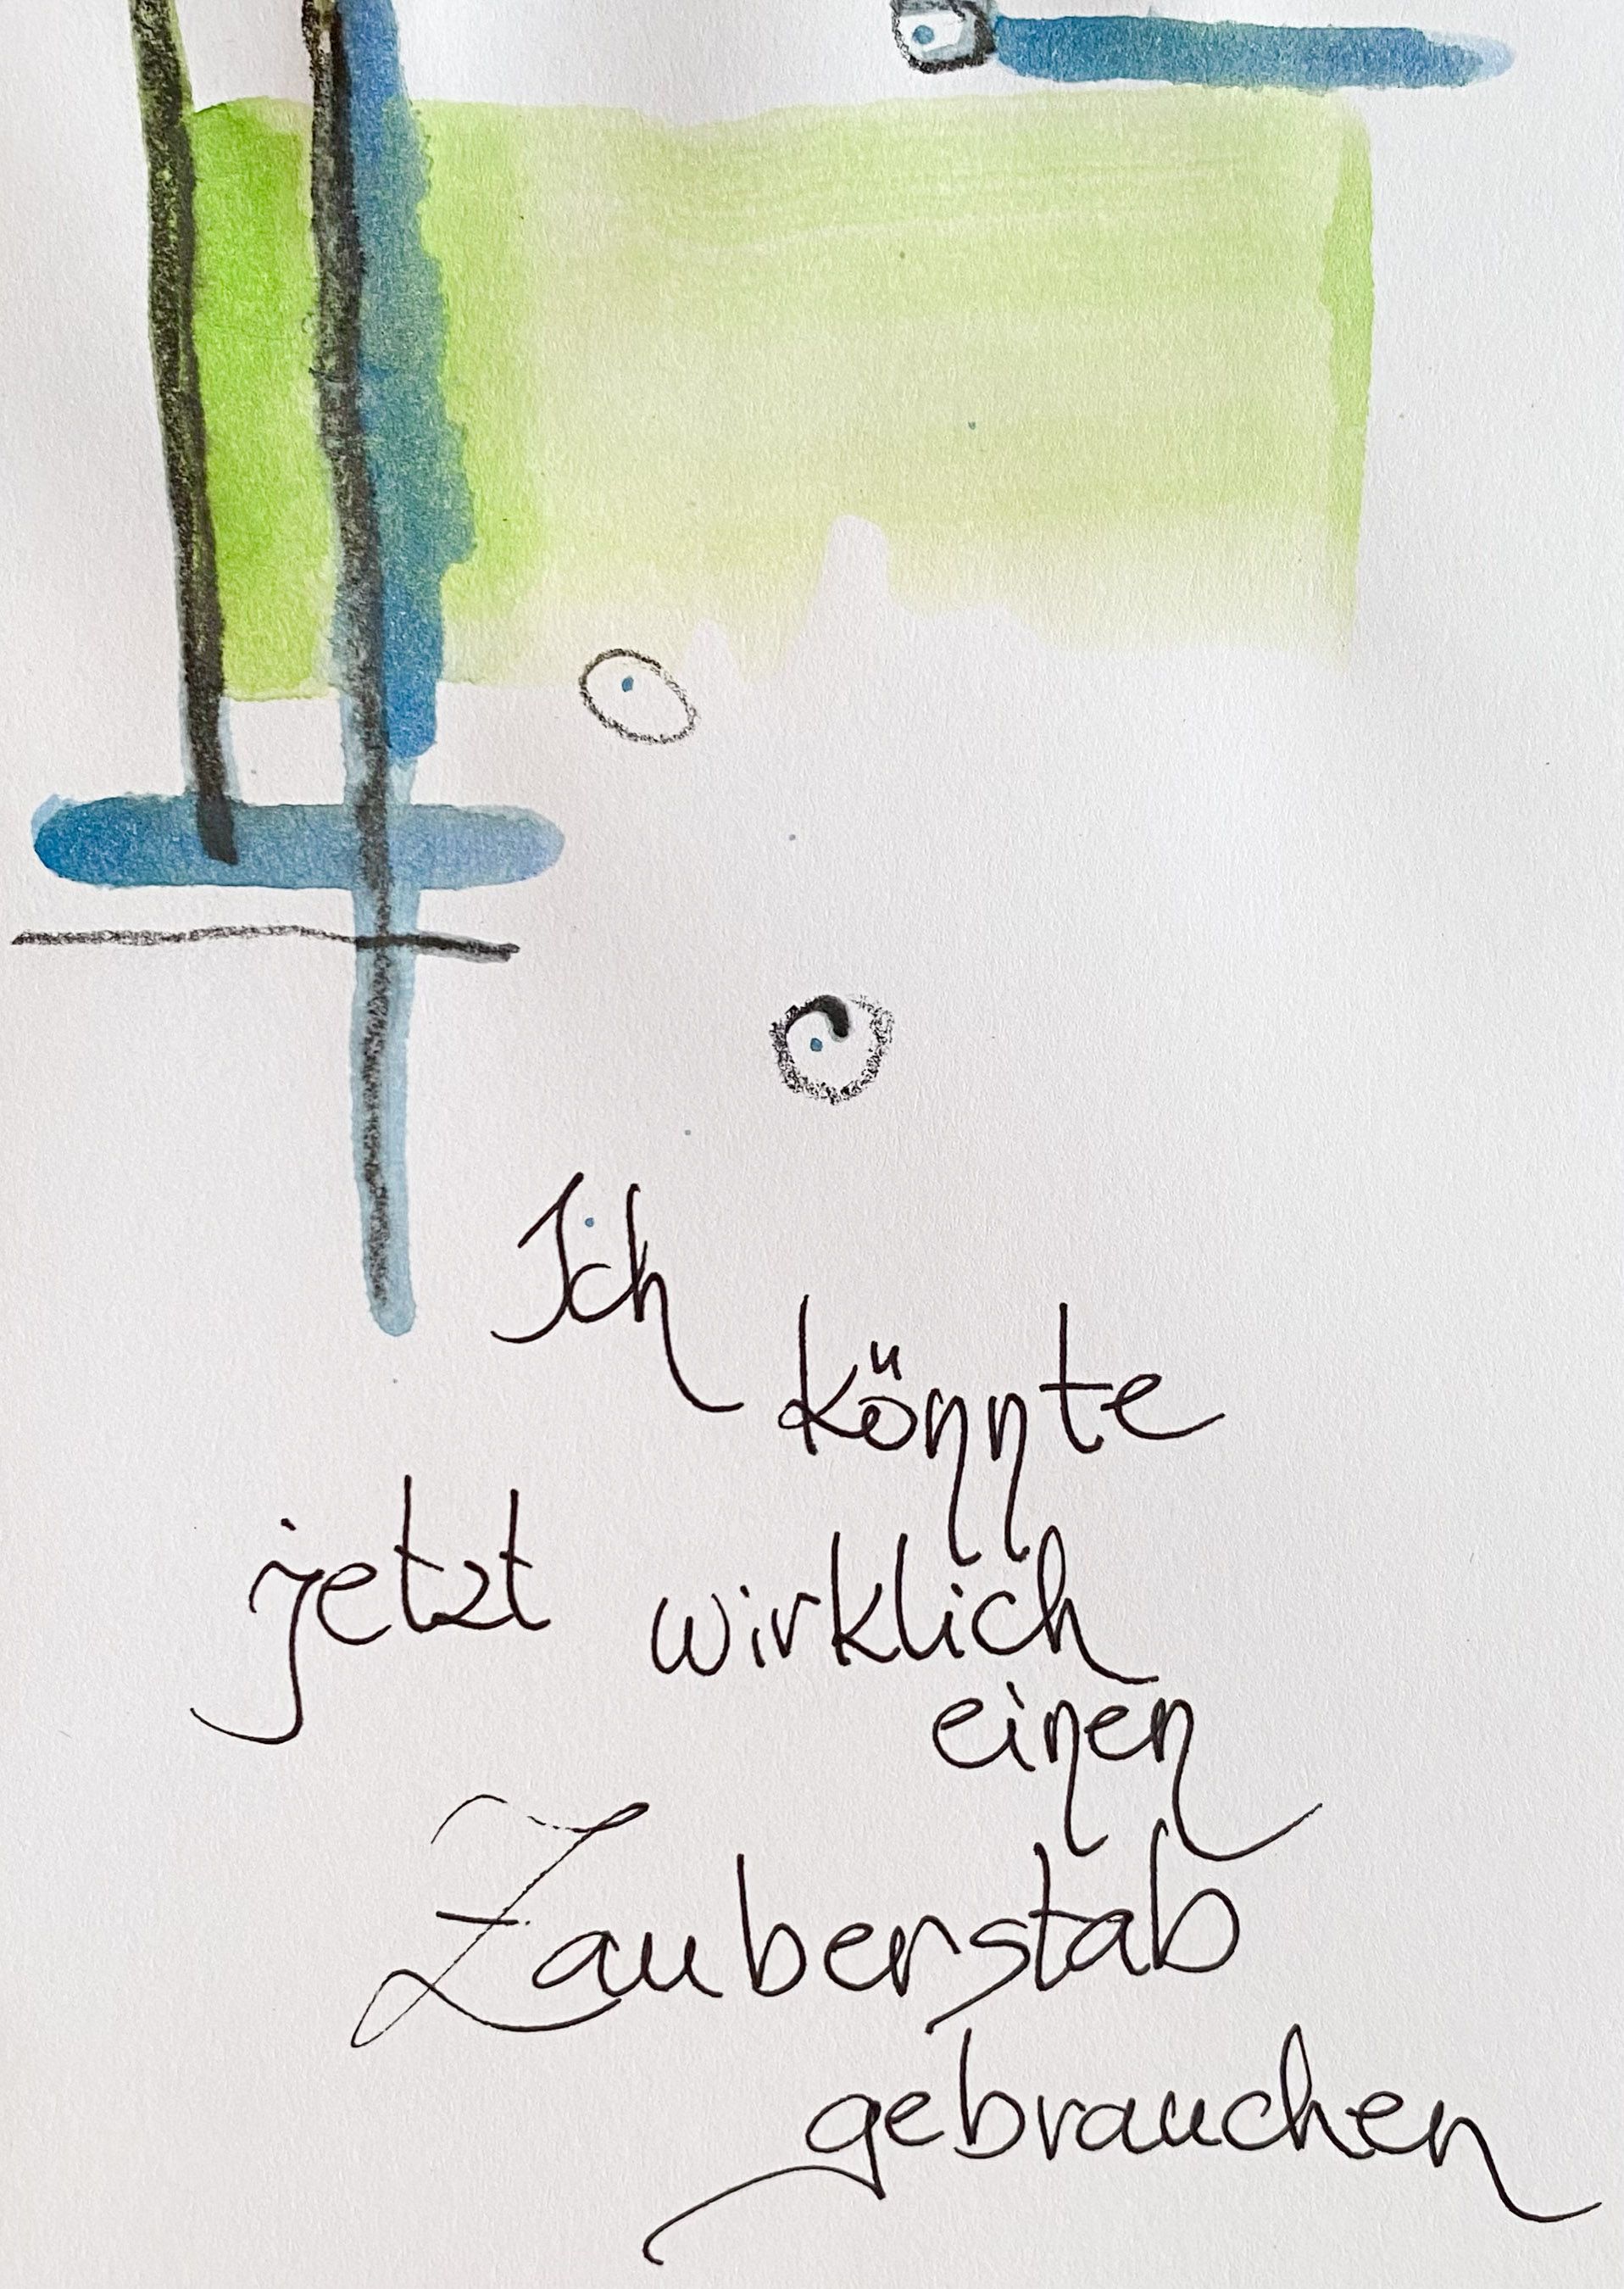 Ich
könnte
jetzt wirklich
einen
Zauberstab
gebrauchen